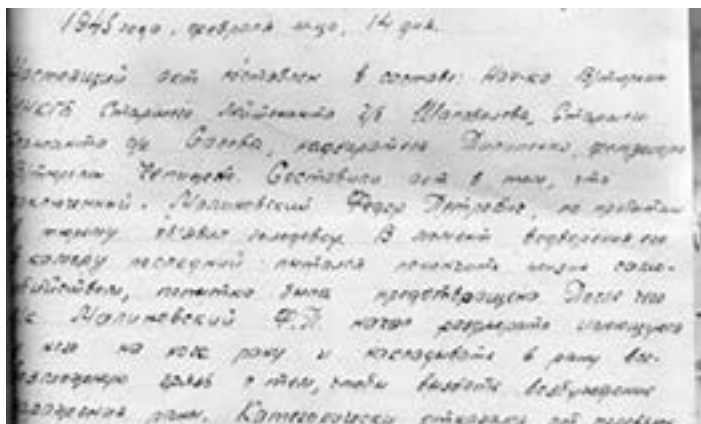 1945 года, февраля м-ца, 14 дня.
Настоящий акт составлен в составе: Нач-ка
НКГБ Старшего Лейтенанта г/б Шаповалова, Старшего
Сержанта г/б надзирателя
Составили акт в том, что
заключенный. Малиновский Федор Петрович, по прибытии
в тюрьму об'явил голодовку. В момент водворения его
в камеру последний пытался покончить жизнь само-
убийством, попытка была предотвращена После чего
Малиновский Ф.П. начал разрывать имеющуюся
у него на ноге рану и накладывать в рану все-
возможную грязь с тем, чтобы вызвать возбуждение
рани. Категорически отказался от